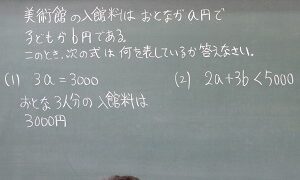 美術館の入館料はおとながa円で
子どもがb円である。
このとき、次の式は何を表しているか答えなさい。
(1) 3a=3000 (2) 2a+3b<5000
おとな3人分の入館料は
3000円